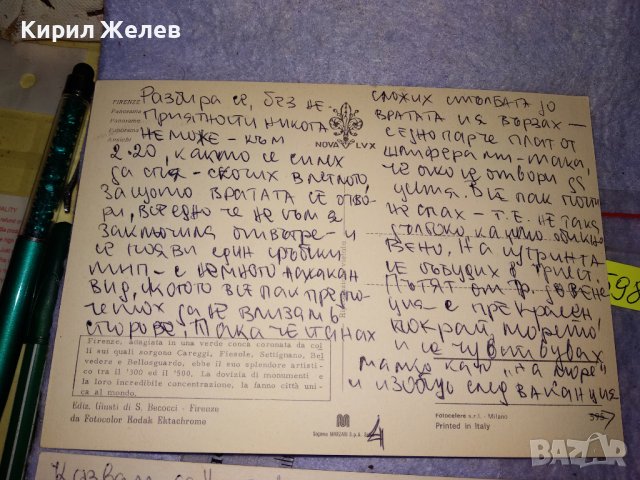 Кирил Желев
FIRENZE
Panorama
Panorama
Panorama
Ansicht
NOVA LVX
Разбира се, без не-
приятности никога
не може – към
2.20, както се силех
да спя – скочих в леглото,
защото вратата се отво-
ри, все едно че не съм я
заключила отвътре – и
се появи един гръбски
тип – с немного нахакан
вид, когото все пак предпо-
четох да не влизам в
спорове. Така че станах
сложих стълбата до
вратата и я вързах –
с едно парче плат от
че ако се отвори да
усетя. Все пак почти
не спах – т.е. не така
дълбоко както обикно-
вено. На сутринта
се събудих в Триест.
Пътят от Тр. до Вене-
ция е прекрасен
покрай морето!
и се чувствувах
малко като "на море"
и изобщо след ваканция
Firenze, adagiata in una verde conca coronata da col
li sui quali sorgono Careggi, Fiesole, Settignano, Bel
vedere e Bellosguardo, ebbe il suo splendore artisti-
co tra il '300 ed il '500. La dovizia di monumenti e
la loro incredibile concentrazione, la fanno città uni-
ca al mondo.
Ediz. Giusti di S. Becocci - Firenze
da Fotocolor Kodak Ektachrome
4
Fotocelere s.r.l. - Milano
Printed in Italy
395
598
Казвам
BAZAR